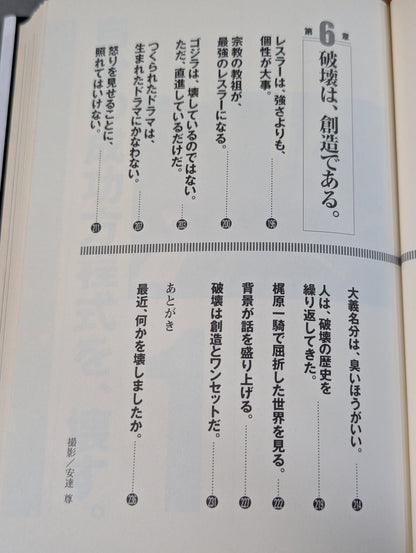 第6章 破壊は、創造である。
レスラーは、強さよりも、
個性が大事。……196
宗教の教祖が、
最強のレスラーになる。……200
ゴジラは、壊しているのではない。
ただ、直進しているだけだ。……203
つくられたドラマは、
生まれたドラマにかなわない。……
怒りを見せることに、
照れてはいけない。……211
大義名分は、臭いほうがいい。……214
人は、破壊の歴史を
繰り返してきた。……
梶原一騎で屈折した世界を見る。……222
背景が話を盛り上げる。……227
破壊は創造とワンセットだ。……231
あとがき
最近、何かを壊しましたか。……236
撮影/安達 尊